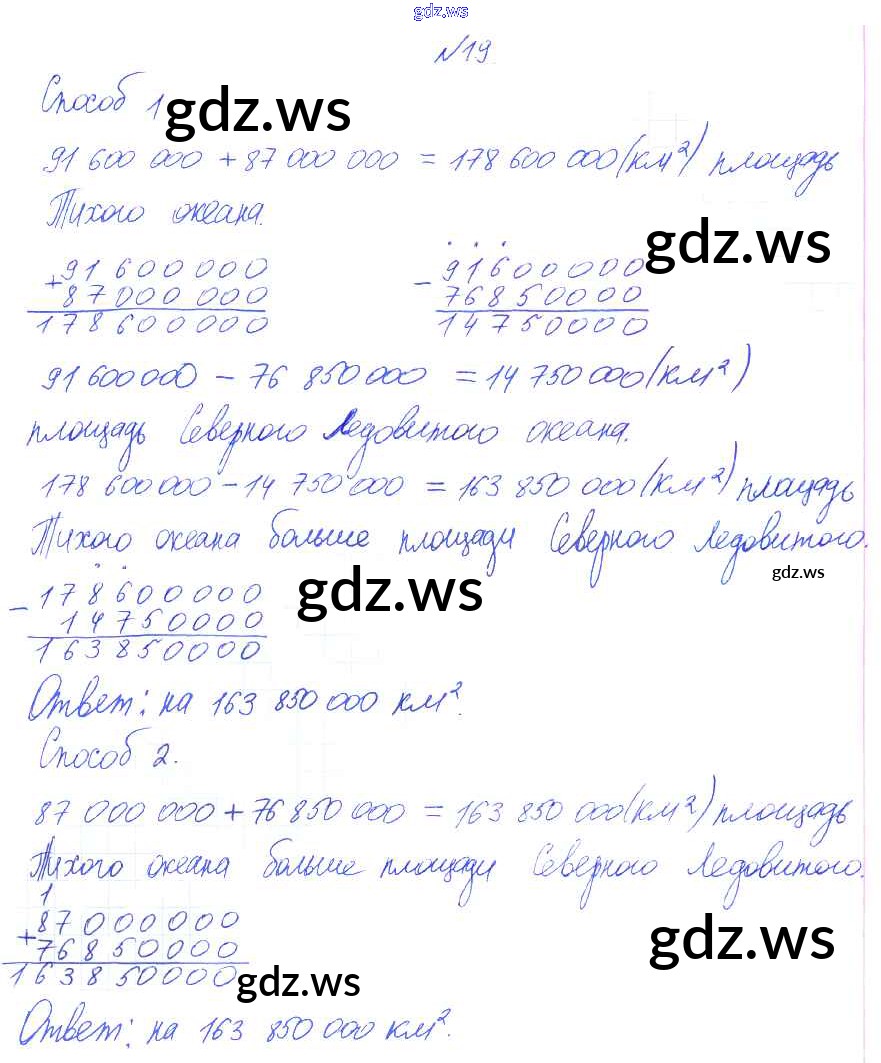 gdz.ws
№19
Способ 1 gdz.ws
91 600 000 + 87 000 000 = 178 600 000 (км²) площадь
Тихого океана.
gdz.ws
+ 91 600 000
87 000 000
178 600 000
- 91 600 000
76 850 000
14 750 000
91 600 000 - 76 850 000 = 14 750 000 (км²)
площадь Северного Ледовитого океана.
178 600 000 - 14 750 000 = 163 850 000 (км²) площадь
Тихого океана больше площади Северного Ледовитого.
gdz.ws
gdz.ws
- 178 600 000
14 750 000
163 850 000
Ответ: на 163 850 000 км².
Способ 2.
87 000 000 + 76 850 000 = 163 850 000 (км²) площадь
Тихого океана больше площади Северного Ледовитого.
1
+ 87 000 000
76 850 000
163 850 000
gdz.ws
gdz.ws
Ответ: на 163 850 000 км².